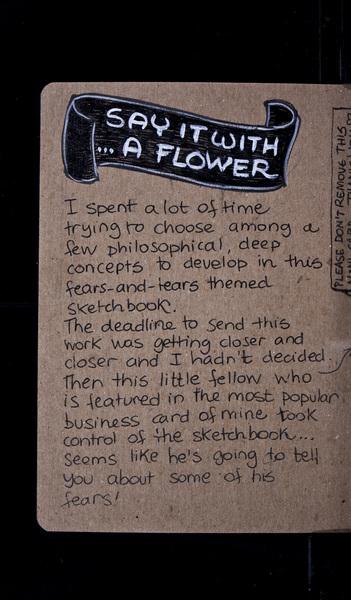 SAY IT WITH
... A FLOWER
I spent a lot of time
trying to choose among a
few philosophical, deep
concepts to develop in this
fears-and-tears themed
sketchbook.
The deadline to send this
work was getting closer and
closer and I hadn't decided.
Then this little fellow who
is featured in the most popular
business card of mine took
control of the sketchbook...
seems like he's going to tell
you about some of his
fears!
PLEASE DON'T REMOVE THIS